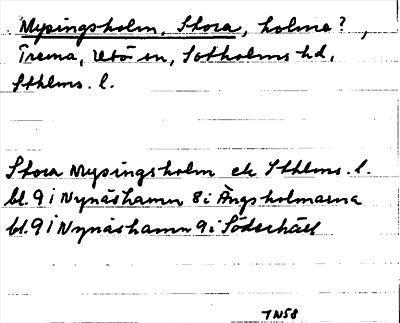 Mysingsholm, Stora, holme?,
Trema, Utö sn, Sotholms hd,
Sthlms. l.
Stora Mysingsholm ek Sthlms. l.
bl. 9 i Nynäshamn 8 i Ängsholmarna
bl. 9 i Nynäshamn 9 i Söderhäll
TN58